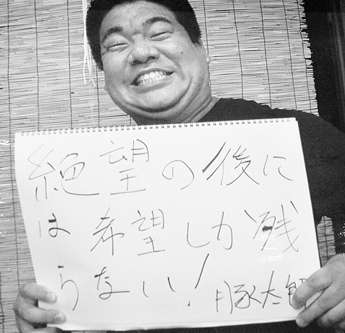 絶望の後に
は希望しか残
らない!豚太郎